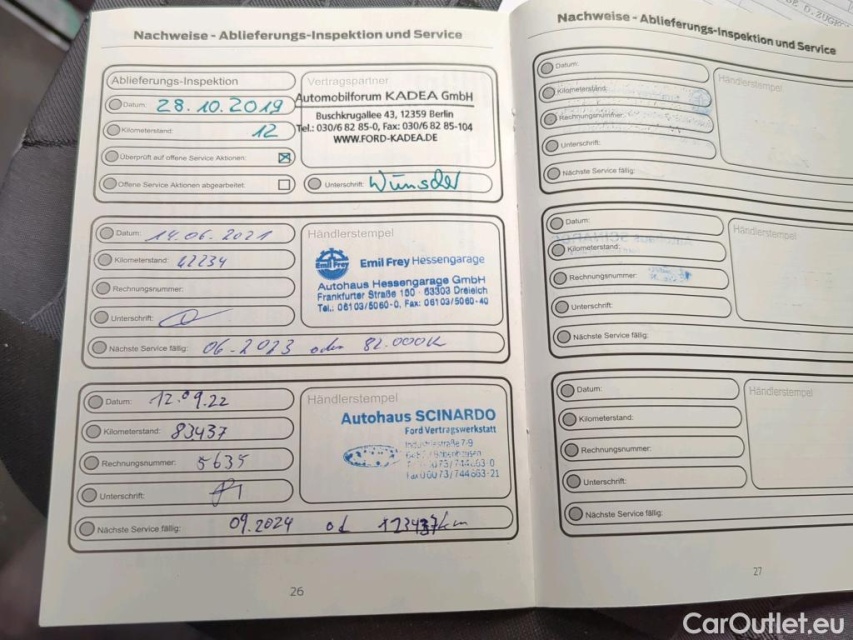 Nachweise - Ablieferungs-Inspektion und Service
Ablieferungs-Inspektion
Datum: 28.10.2019
Kilometerstand: 12
Überprüft auf offene Service Aktionen:
Offene Service Aktionen abgearbeitet:
Vertragspartner
Automobilforum KADEA GmbH
Buschkrugallee 43, 12359 Berlin
Tel.: 030/6 82 85-0, Fax: 030/6 82 85-104
WWW.FORD-KADEA.DE
Unterschrift:
Datum: 14.06.2021
Kilometerstand: 42234
Rechnungsnummer:
Unterschrift:
Händlerstempel
Emil Frey
Emil Frey Hessengarage
Autohaus Hessengarage GmbH
Frankfurter Straße 150 · 63303 Dreieich
Tel.: 06103/5060-0, Fax: 06103/5060-40
Nächste Service fällig: 06-2023 oder 82.000K
Datum: 12.09.22
Kilometerstand: 83437
Rechnungsnummer: 5635
Unterschrift:
Händlerstempel
Autohaus SCINARDO
Ford Vertragswerkstatt
Industriestraße 7-9
Nächste Service fällig: 09.2024 od 123437km
26
Nachweise - Ablieferungs-Inspektion und Service
Datum:
Kilometerstand:
Rechnungsnummer:
Unterschrift:
Nächste Service fällig:
Händlerstempel
Datum:
Kilometerstand:
Rechnungsnummer:
Unterschrift:
Nächste Service fällig:
Händlerstempel
Datum:
Kilometerstand:
Rechnungsnummer:
Unterschrift:
Nächste Service fällig:
Händlerstempel
27
CarOutlet.eu